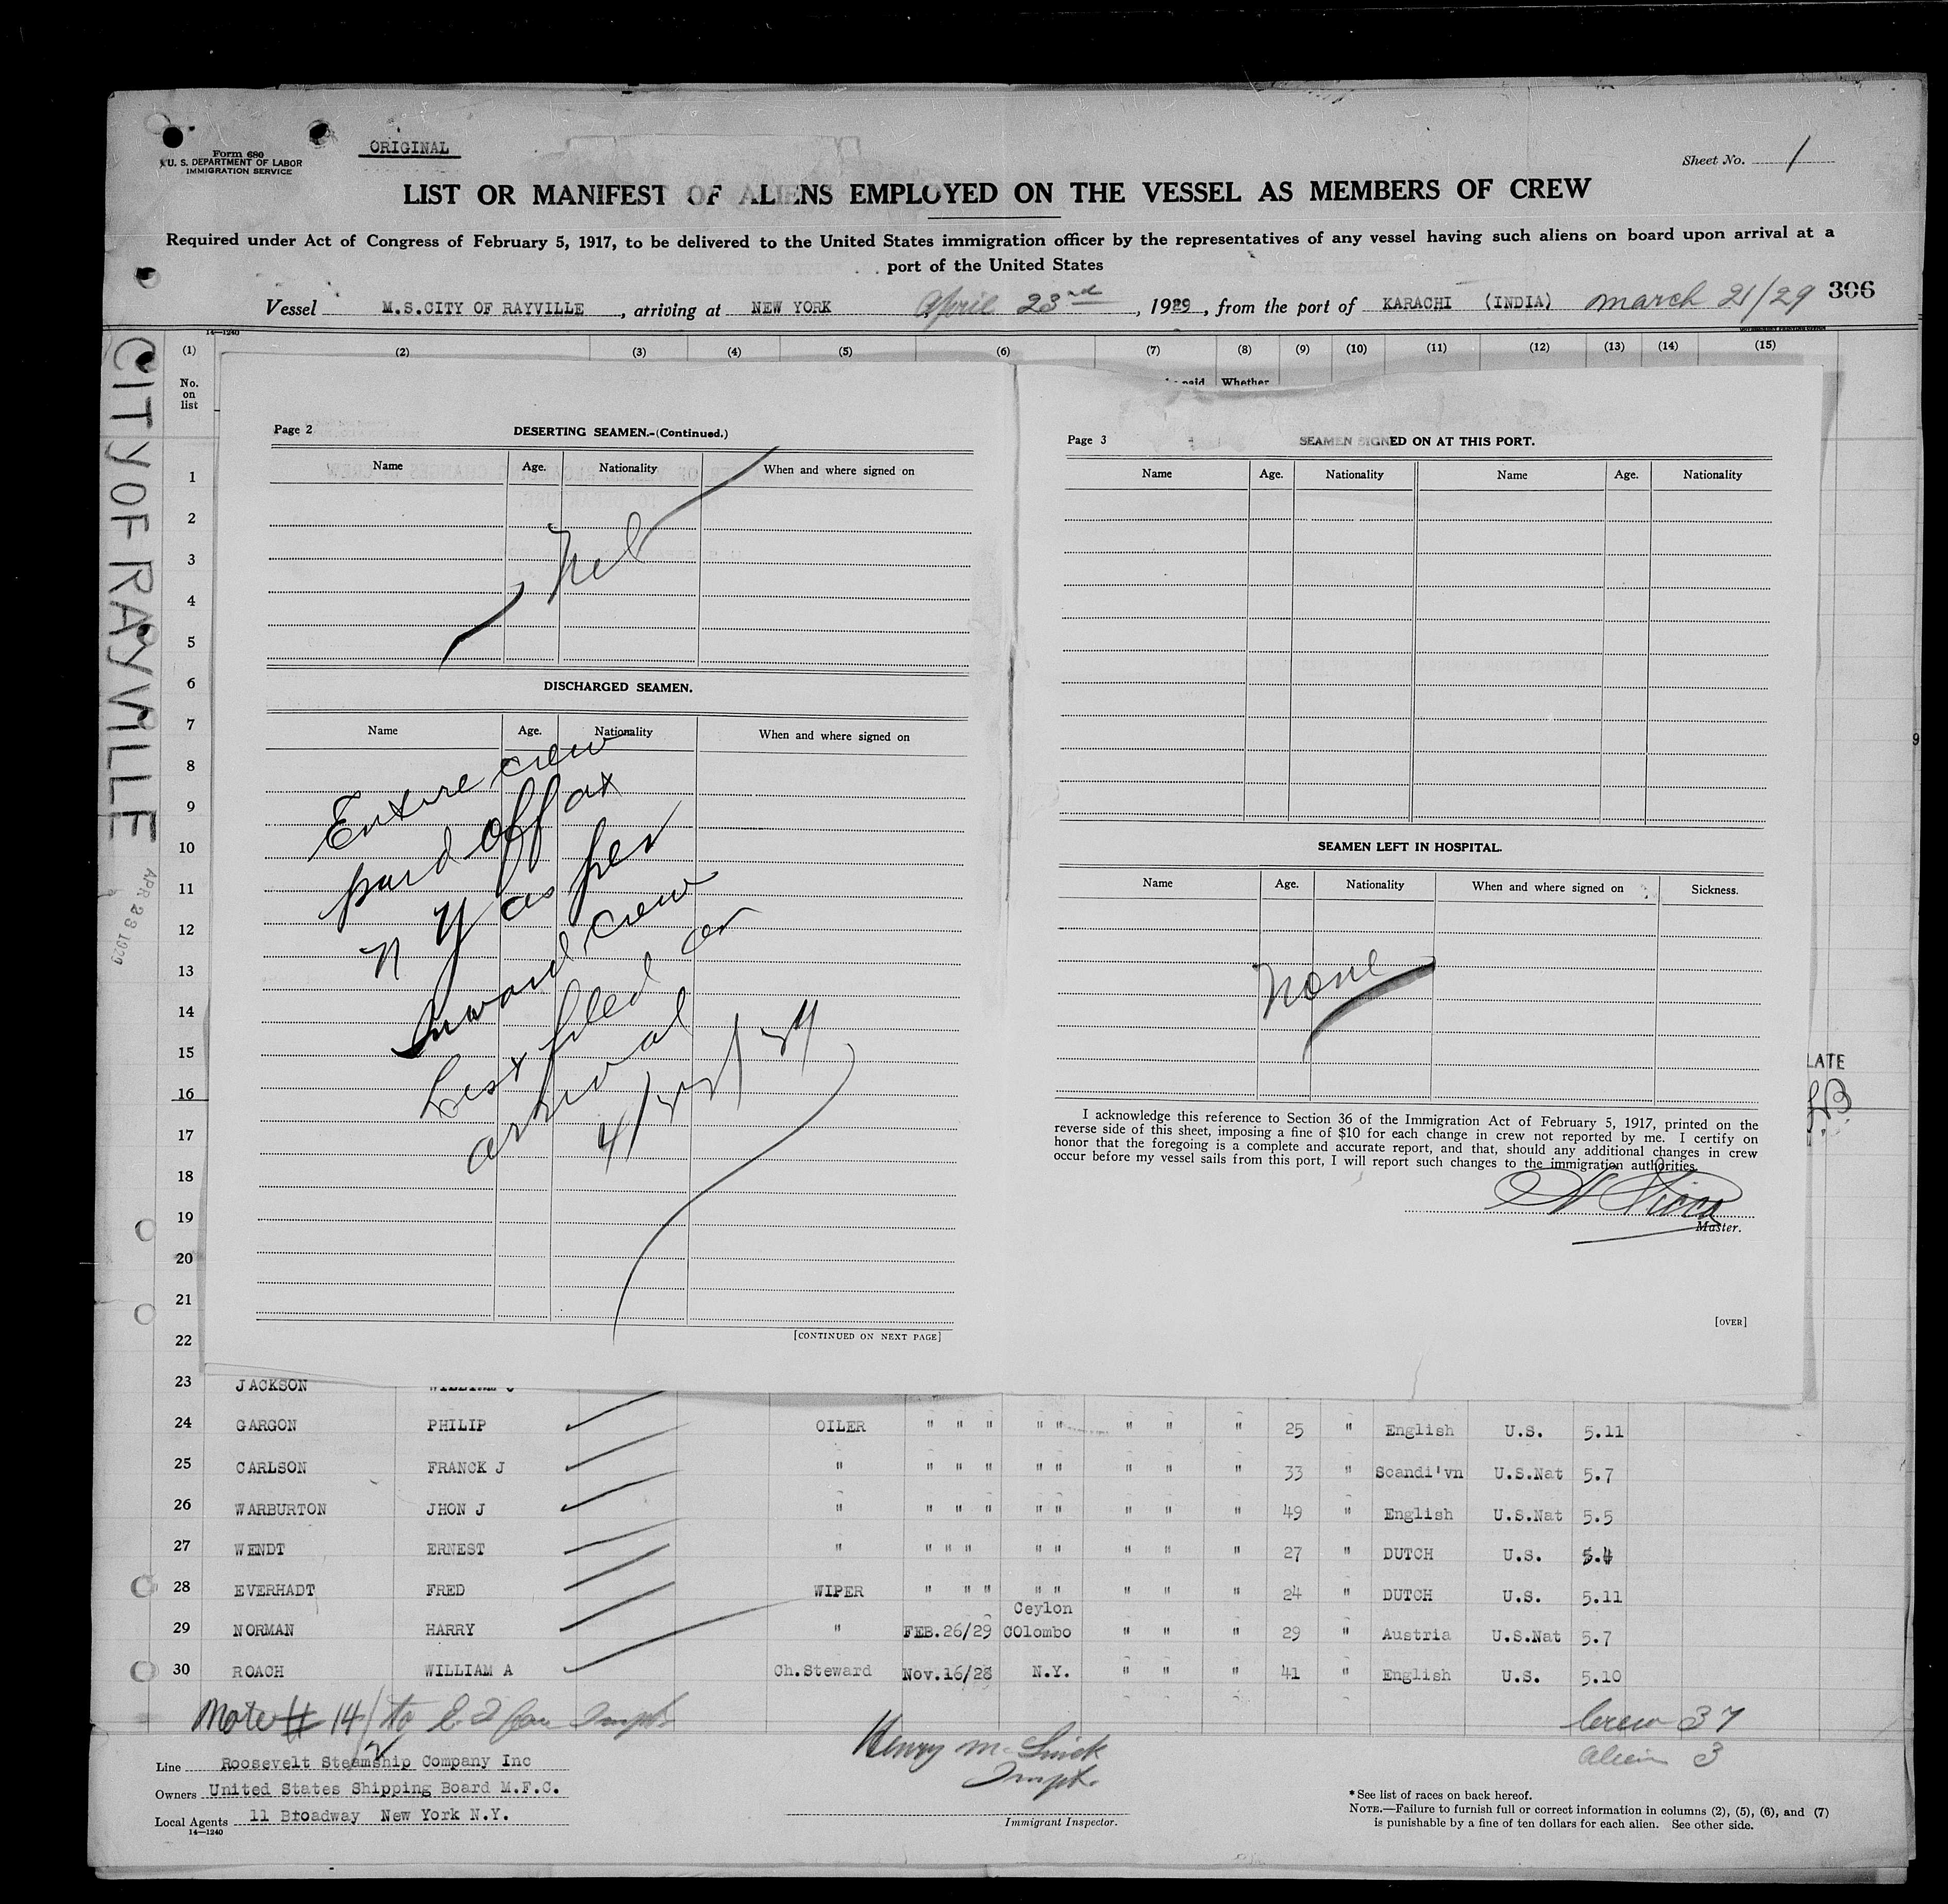 Form 680
U. S. DEPARTMENT OF LABOR
IMMIGRATION SERVICE
ORIGINAL
Sheet No. 1
LIST OR MANIFEST OF ALIENS EMPLOYED ON THE VESSEL AS MEMBERS OF CREW
Required under Act of Congress of February 5, 1917, to be delivered to the United States immigration officer by the representatives of any vessel having such aliens on board upon arrival at a
port of the United States
Vessel M.S.CITY OF RAYVILLE, arriving at NEW YORK April 23rd, 1929, from the port of KARACHI (INDIA) march 21/29 306
14—1240
(1) (2) (3) (4) (5) (6) (7) (8) (9) (10) (11) (12) (13) (14) (15)
No.
on
list
paid Whether
CITY OF RAYVILLE
APR 23 1929
1
2
3
4
5
6
7
8
9
10
11
12
13
14
15
16
17
18
19
20
21
22
Page 2 DESERTING SEAMEN.-(Continued.)
Name Age. Nationality When and where signed on
Nil
DISCHARGED SEAMEN.
Name Age. Nationality When and where signed on
Entire crew
paid off at
N Y as per
Inward crew
List filed on
arrival
[CONTINUED ON NEXT PAGE]
Page 3 SEAMEN SIGNED ON AT THIS PORT.
Name Age. Nationality Name Age. Nationality
SEAMEN LEFT IN HOSPITAL.
Name Age. Nationality When and where signed on Sickness.
None
I acknowledge this reference to Section 36 of the Immigration Act of February 5, 1917, printed on the
reverse side of this sheet, imposing a fine of $10 for each change in crew not reported by me. I certify on
honor that the foregoing is a complete and accurate report, and that, should any additional changes in crew
occur before my vessel sails from this port, I will report such changes to the immigration authorities.
Master.
[OVER]
LATE
9
23 JACKSON WILLIAM J
24 GARGON PHILIP OILER " " " " " " " " 25 " English U.S. 5.11
25 CARLSON FRANCK J " " " " " " " " " 33 " Scandi'vn U.S.Nat 5.7
26 WARBURTON JHON J " " " " " " " " " 49 " English U.S.Nat 5.5
27 WENDT ERNEST " " " " " " " " " 27 " DUTCH U.S. 5.4
28 EVERHADT FRED WIPER " " " " " " " " 24 " DUTCH U.S. 5.11
Ceylon
29 NORMAN HARRY " FEB.26/29 COlombo " " " 29 " Austria U.S.Nat 5.7
30 ROACH WILLIAM A Ch.Steward Nov.16/28 N.Y. " " " 41 " English U.S. 5.10
Note # 14 to
Crew 37
Alien 3
Line Roosevelt Steamship Company Inc
Owners United States Shipping Board M.F.C.
Local Agents 11 Broadway New York N.Y.
14—1240
Henry
Immigrant Inspector.
* See list of races on back hereof.
NOTE.—Failure to furnish full or correct information in columns (2), (5), (6), and (7)
is punishable by a fine of ten dollars for each alien. See other side.